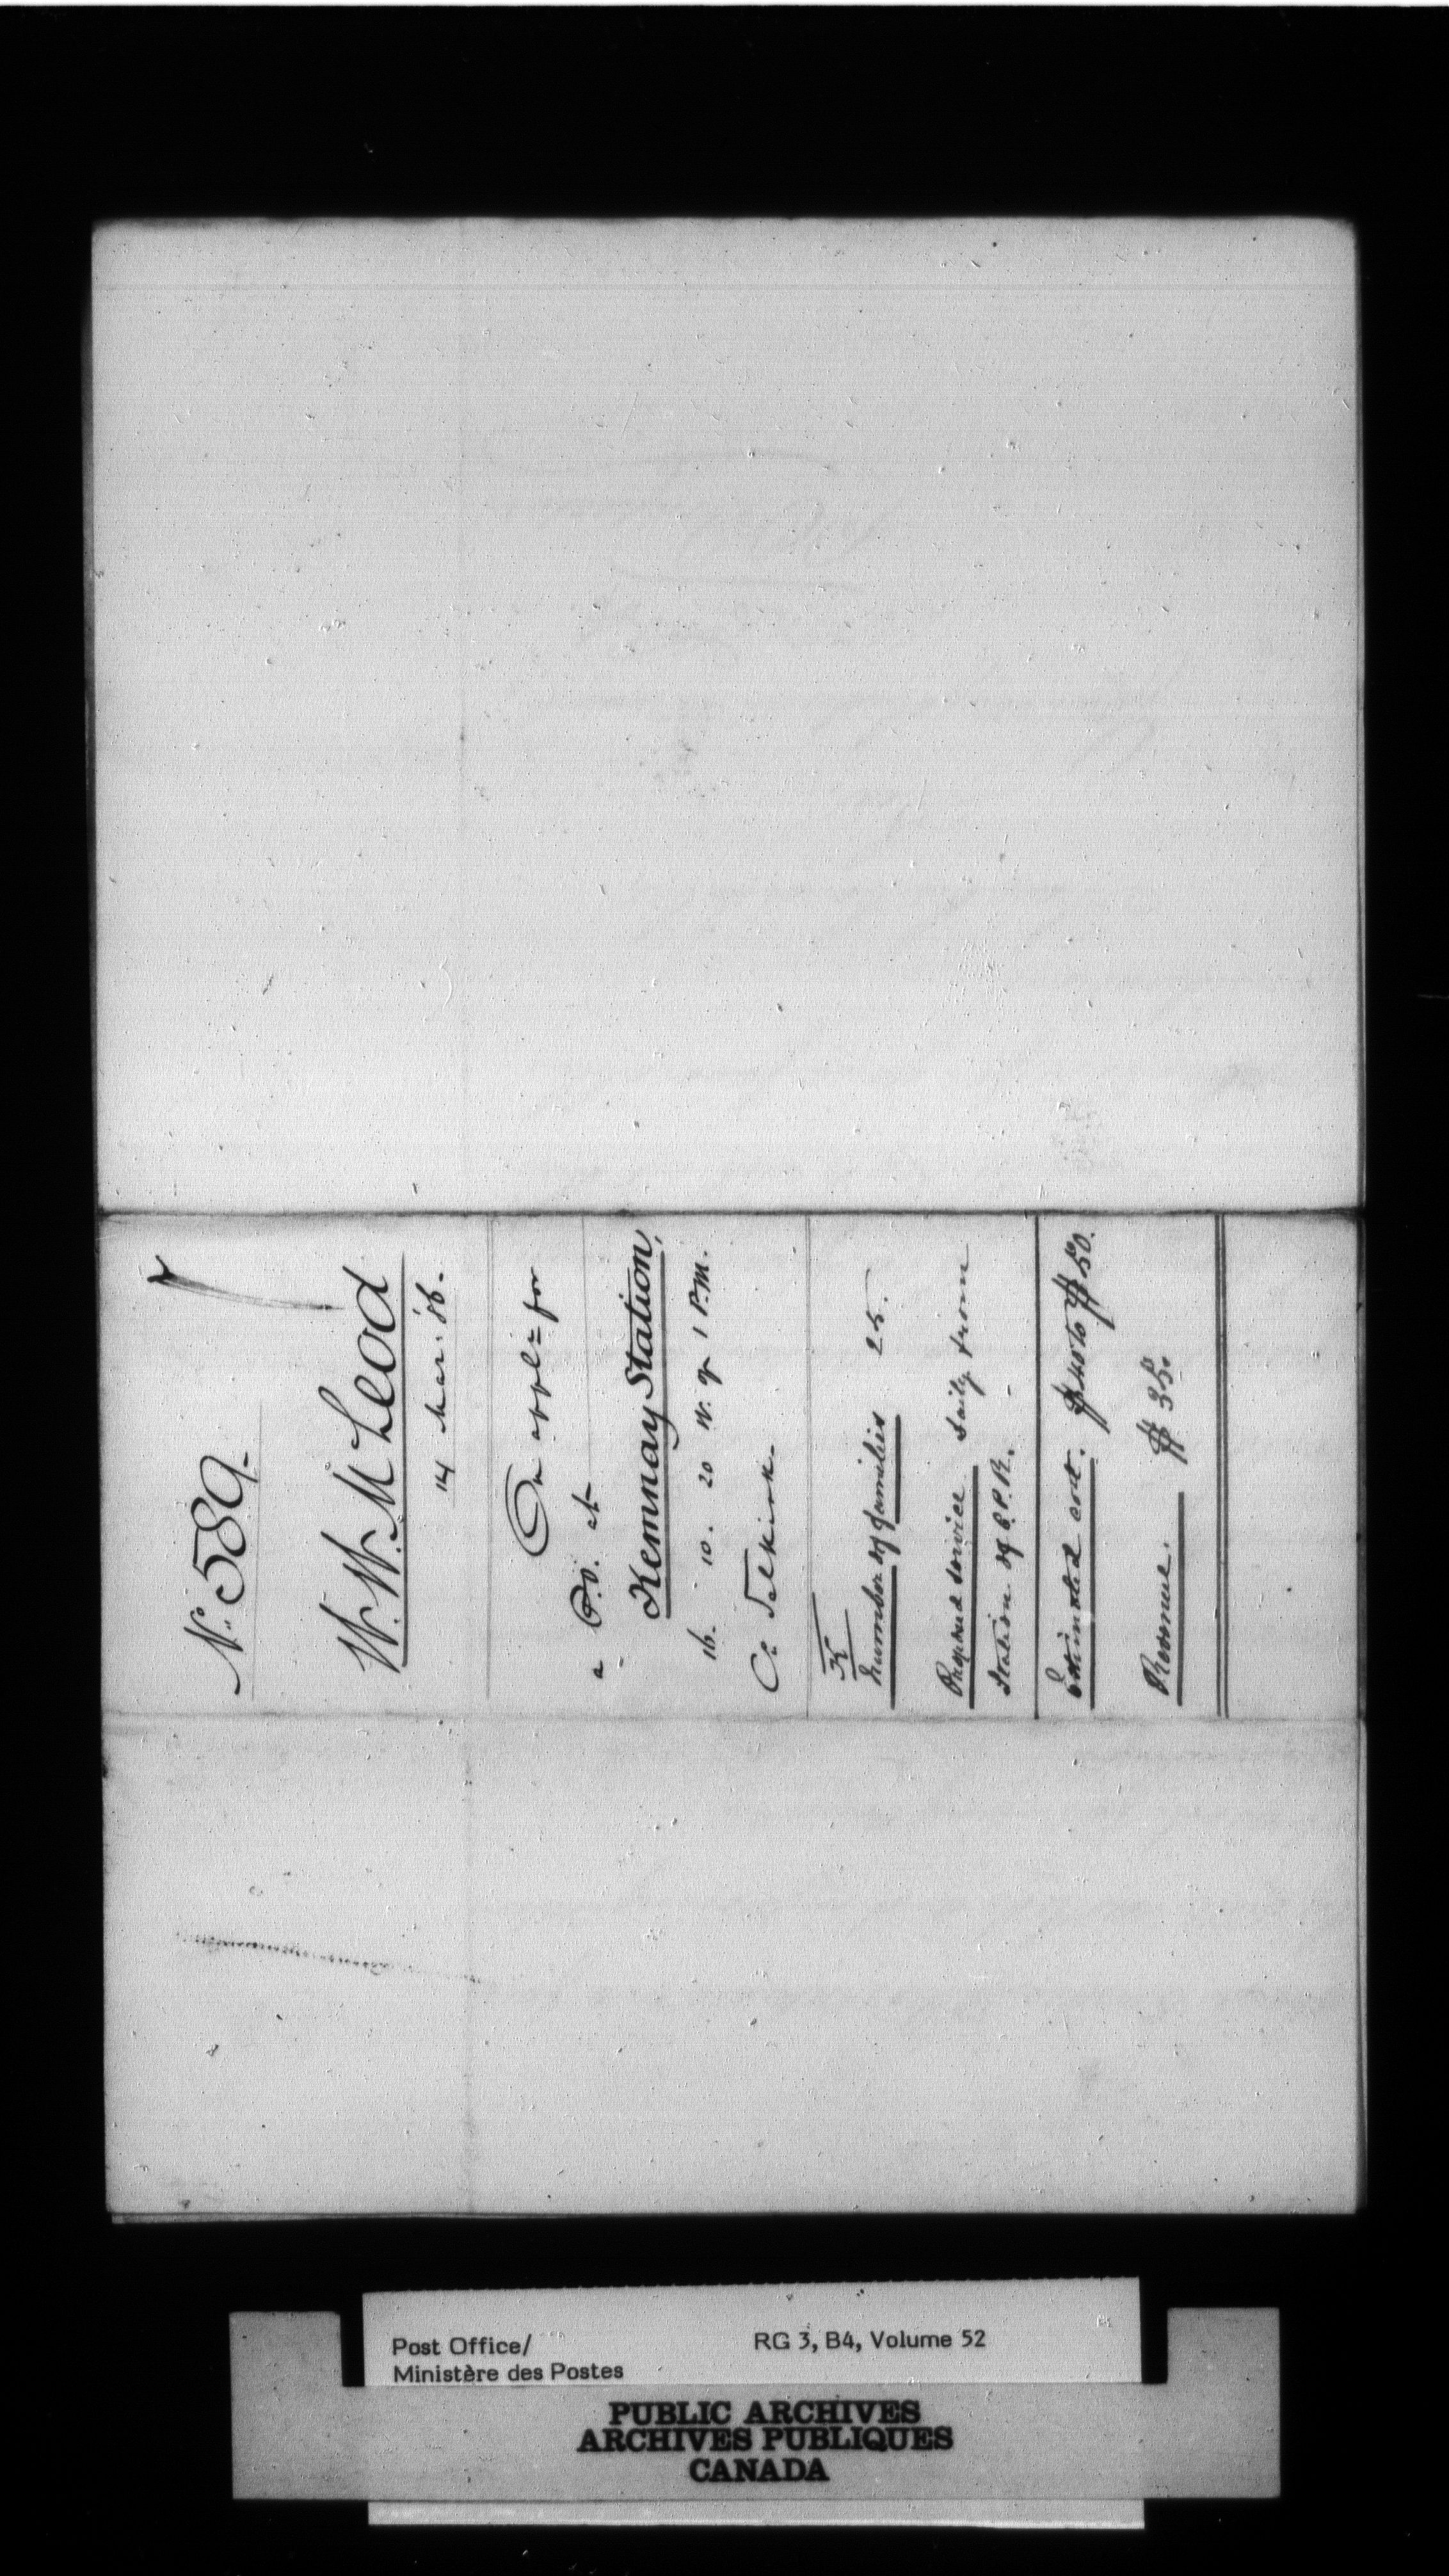 No. 589-
W. W. McLeod
14 Mar: 86.
On appl= for
a P.O. at
Kemnay Station,
16. 10. 20 W. of 1 P.M.
Co Selkirk.
K
Number of families 25.
Proposed service Daily from
Station of C.P.R. -
Estimated cost. $40 to $50.
Revenue. $35.
Post Office/
Ministère des Postes
RG 3, B4, Volume 52
PUBLIC ARCHIVES
ARCHIVES PUBLIQUES
CANADA